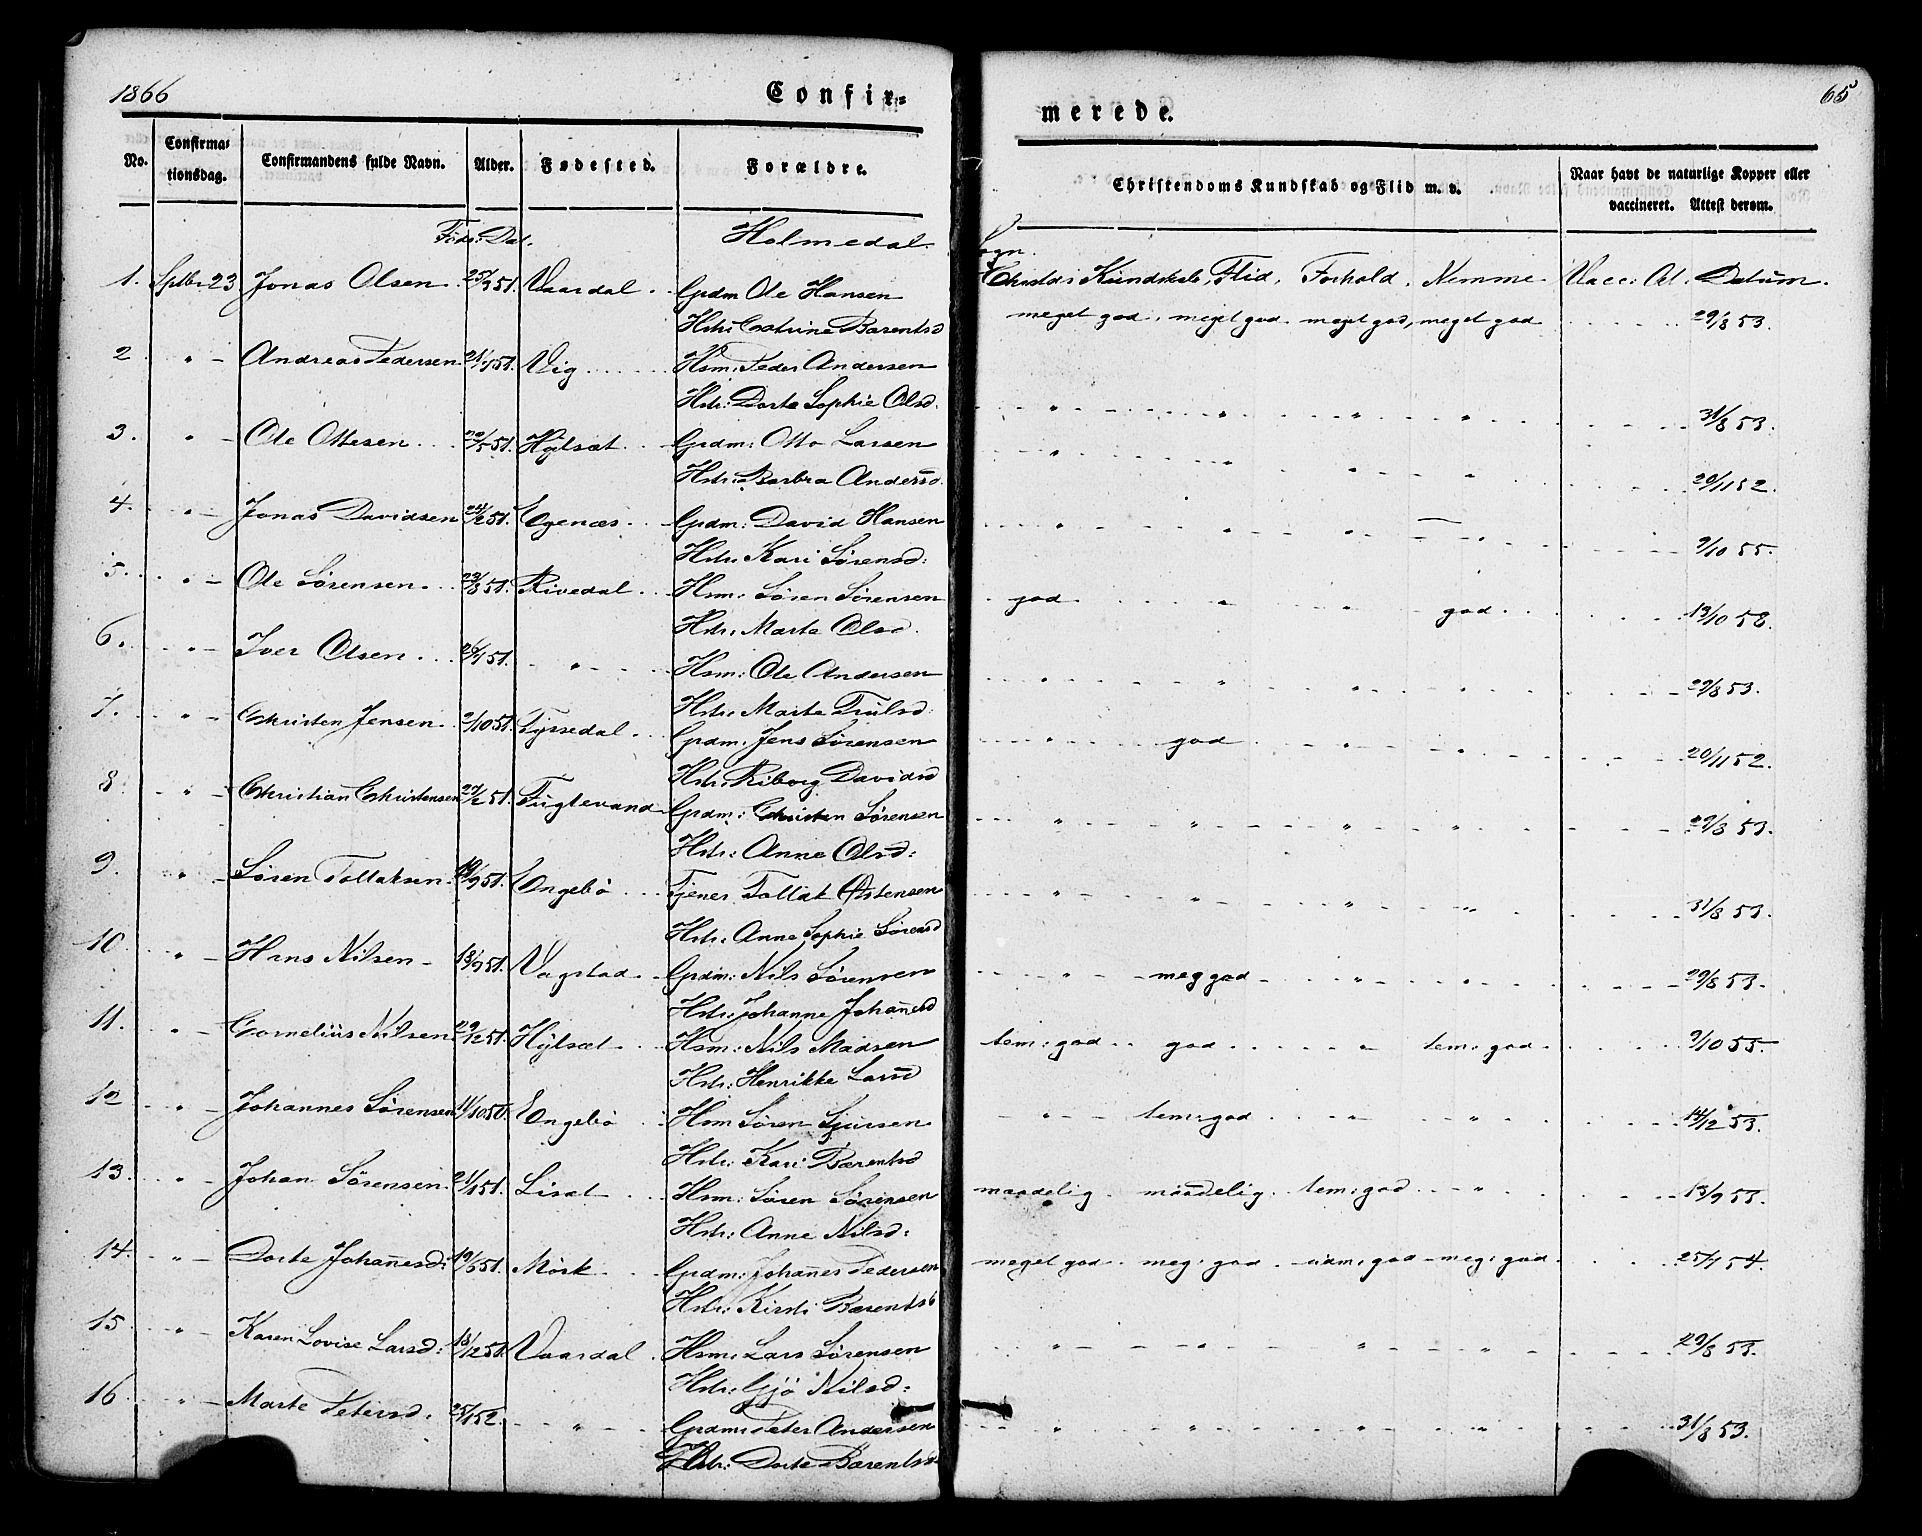 1866
Confir=
No.
Confirma=
tionsdag.
Confirmandens fulde Navn.
Alder.
Fødested.
Forældre.
Føds: Dat.
Holmedal
1. Sptbr 23 Jonas Olsen 25/9 51. Vaardal Grdm Ole Hansen
Hstr: Cathrine Barentsd
2 " Andreas Pedersen 21/7 51. Vig Hsm: Peder Andersen
Hstr: Dorte Sophie Olsd.
3. " Ole Ottesen 51. Hylsæt Grdm: Otto Larsen
Hstr: Barbra Andersd.
4. " Jonas Davidsen 51. Egenæs Grdm: David Hansen
Hstr: Kari Sørensd:
5. " Ole Sørensen 29/8 51. Rivedal Hsm: Søren Sørensen
Hstr: Marte Olsd.
6. " Iver Olsen 51. " Hsm: Ole Andersen
Hstr: Marte Trulsd:
7. " Christen Jensen 2/10 51. Tyssedal Grdm: Jens Sørensen
Hstr: Riborg Davidsd
8. " Christian Christensen 51. Fuglevand Grdm: Christen Sørensen
Hstr: Anne Olsd:
9. " Søren Tollaksen 51. Engebø Tjener Tollak Østensen
Hstr: Anne Sophie Sørensd
10. " Hans Nilsen 18/9 51. Vagstad Grdm: Nils Sørensen
Hstr: Johanne Johanesd
11. " Cornelius Nilsen 29/12 51. Hylsæt Hsm: Nils Madsen
Hstr: Henrikke Larsd
12 " Johannes Sørensen 11/10 50. Engebø Hsm Søren Sjursen
Hstr: Kari Bærentsd
13. " Johan Sørensen 21/1 51. Lisæt Hsm: Søren Sørensen
Hstr: Anne Nilsd:
14. " Dorte Johanesd: 51. Mörk Grdm: Johanes Pedersen
Hstr: Kirsti Bærentsd
15. " Karen Lovise Larsd: 18/12 51. Vaardal Hsm: Lars Sørensen
Hstr: Gjø Nilsd:
16. " Marte Petersd: 25/1 52. " Grdm: Peter Andersen
Hstr: Dorte Bærentsd
merede.
65
Christendoms Kundskab og Flid m. v.
Naar havt de naturlige Kopper eller
vaccineret. Attest derom.
Christds Kundskab, Flid, Forhold, Nemme. Vacc: At. Datum.
meget god, meget god. meget god, meget god 29/8 53.
" " " " 31/8 53.
" " " " 20/11 52.
" " " 9/10 55.
god " " god 13/10 58.
" " " " 29/8 53.
" god " " 20/11 52.
" " " " 29/8 53.
" " " " 31/8 53.
" meg god " " 29/8 53.
tem: god god " tem: god 9/10 55.
" tem: god " " 14/12 53.
maadelig. maadelig. tem: god " 13/9 53.
meget god. meg: god udm: god meg: god. 25/7 54.
" " " " 29/8 53.
" " " " 31/8 53.